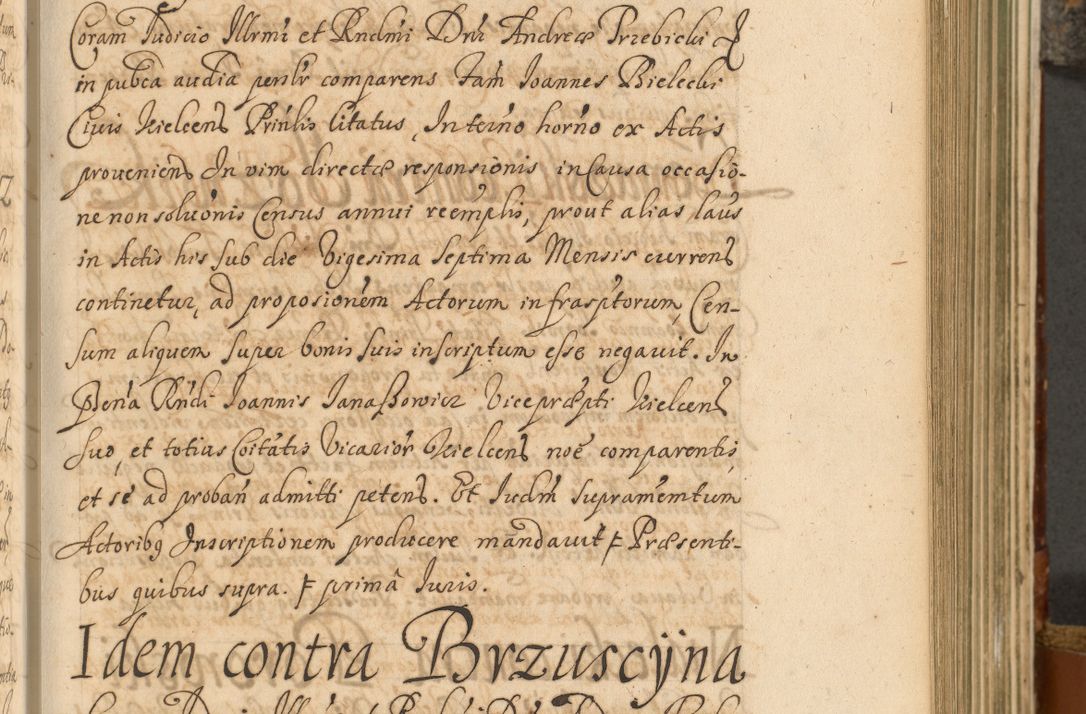 Coram Judicio Illrmi et Rndmi Dni Andreæ Trzebicki
in pubca audia perslr comparens Fam Ioannes Bielecki
Civis Kielcens Prinlis Citatus, In teino horno ex Actis
proveniens In vim directæ responsionis in Causa occasio-
ne non soluonis Census annui reemplis, prout alias laus
in Actis his sub die Vigesima Septima Mensis currens
continetur, ad proposionem Actorum infrasptorum, Cen-
sum aliquem super bonis suis inscriptum esse negavit. In
Pdena Rndi Ioannis Ianaszowicz Vicepræpti Kielcens
suo, et totius Coitatis Vicarior Kielcens noe comparentis
et se ad proban admitti petens. Et Iudm supramemtum
Actoribq Inscriptionem producere mandavit Præsenti-
bus quibus supra. prima Iuris.
Idem contra Brzuscÿna